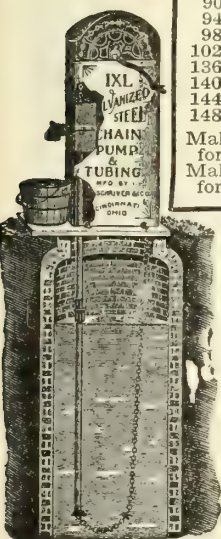 IXL
GALVANIZED
STEEL
CHAIN
PUMP
&
TUBING
MFD BY
SCHRIVER & CO.
CINCINNATI
OHIO
90
94
98
102
136
140
144
148
Mal
for
Mal
for